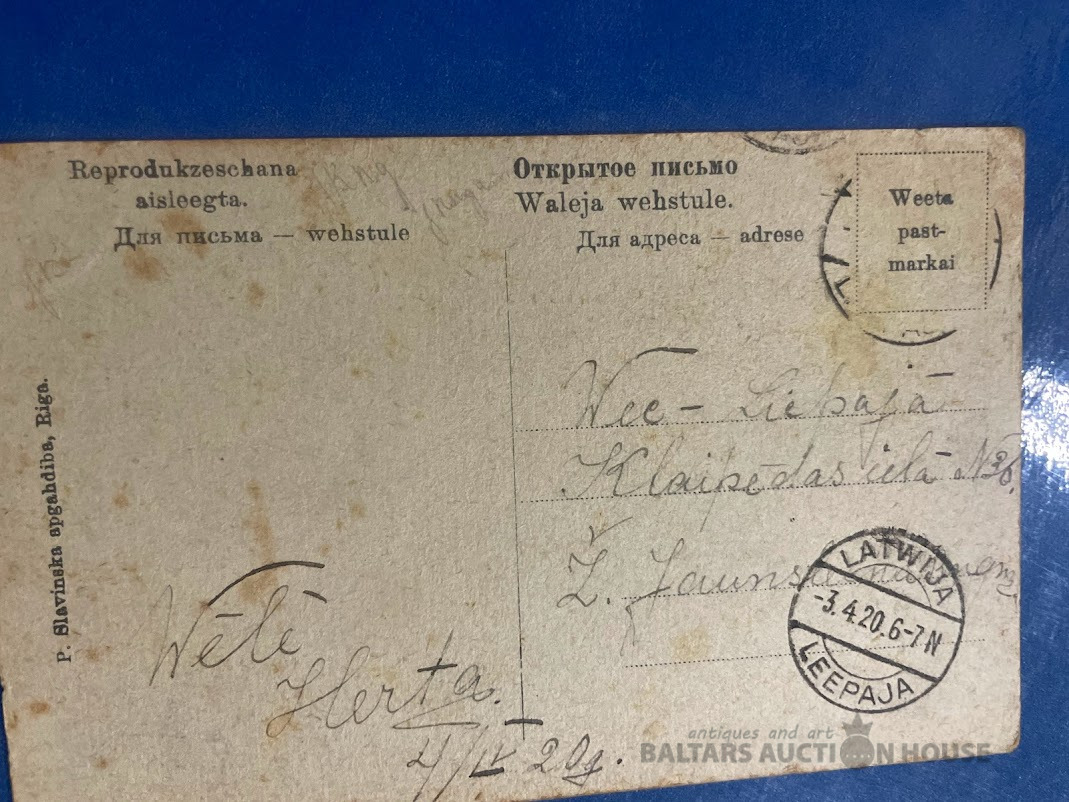 Reprodukzeschana
aisleegta.
Для письма — wehstule
Открытое письмо
Waleja wehstule.
Для адреса — adrese
Weeta
past-
markai
P. Slavinska apgahdiba, Riga.
Wee- Liepajā
Klaipēdas ielā №
Ž.
LATWIJA
-3.4.20.6-7N
LEEPAJA
Wēlē
Herta.
4/IV 20g.
antiques and art
BALTARS AUCTION HOUSE